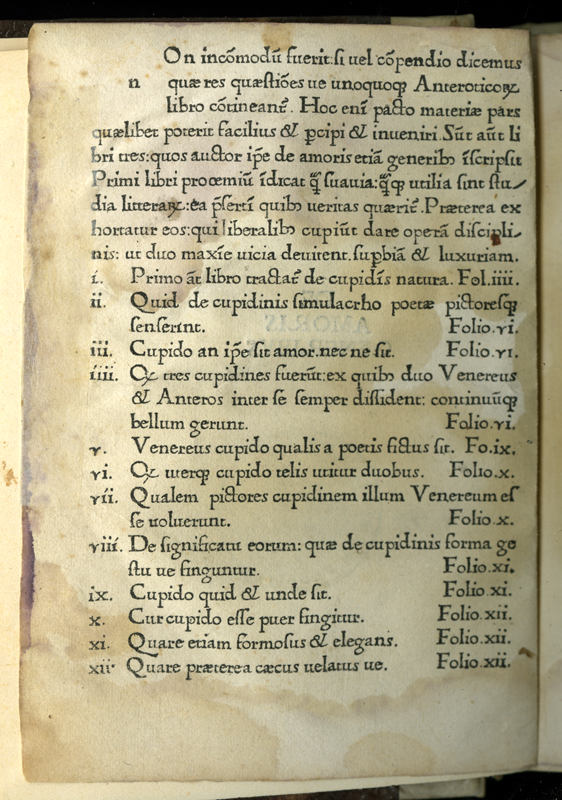 On incōmodū fuerit: si uel cōpendio dicemus
n quæ res quæstiões ue unoquoqꝫ Anteroticoꝝ
libro cōtineant᷑. Hoc eni᷑ pacto materiæ pars
quælibet poterit facilius & ꝑcipi & inueniri. Sūt aūt li
bri tres: quos auctor ip̄e de amoris etiā generibꝫ īscripsit
Primi libri prooemiū īdicat ꝗ̄ suauia: ꝗ̄qꝫ utilia sint stu⸗
dia litteraꝝ: ea p̄serti᷑ quibꝫ ueritas quærit᷑. Præterea ex
hortatur eos: qui liberalibꝫ cupiūt dare operā discipli⸗
nis: ut duo maxīe uicia deuitent. suꝑbiā & luxuriam.
i. Primo āt libro tractat᷑ de cupidīs natura. Fol.iiii.
ii. Quid de cupidinis simulacrho poetæ pictoresqꝫ
senserīnt. Folio.vi.
iii. Cupido an ip̄e sit amor. nec ne sit. Folio.vi.
iiii. Qꝫ tres cupidines fuerūt: ex quibꝫ duo Venereus
& Anteros inter se semper dissident: continuūqꝫ
bellum gerunt. Folio.vi.
v. Venereus cupido qualis a poetis fictus sit. Fo.ix.
vi. Qꝫ uterqꝫ cupido telis utitur duobus. Folio.x.
vii. Qualem pictores cupidinem illum Venereum es
se uoluerunt. Folio.x.
viii. De significatu eorum: quæ de cupidinis forma ge
stu ue finguntur. Folio.xi.
ix. Cupido quid & unde sit. Folio.xi.
x. Cur cupido esse puer fingitur. Folio.xii.
xi. Quare etiam formosus & elegans. Folio.xii.
xii. Quare præterea cæcus uelatus ue. Folio.xii.